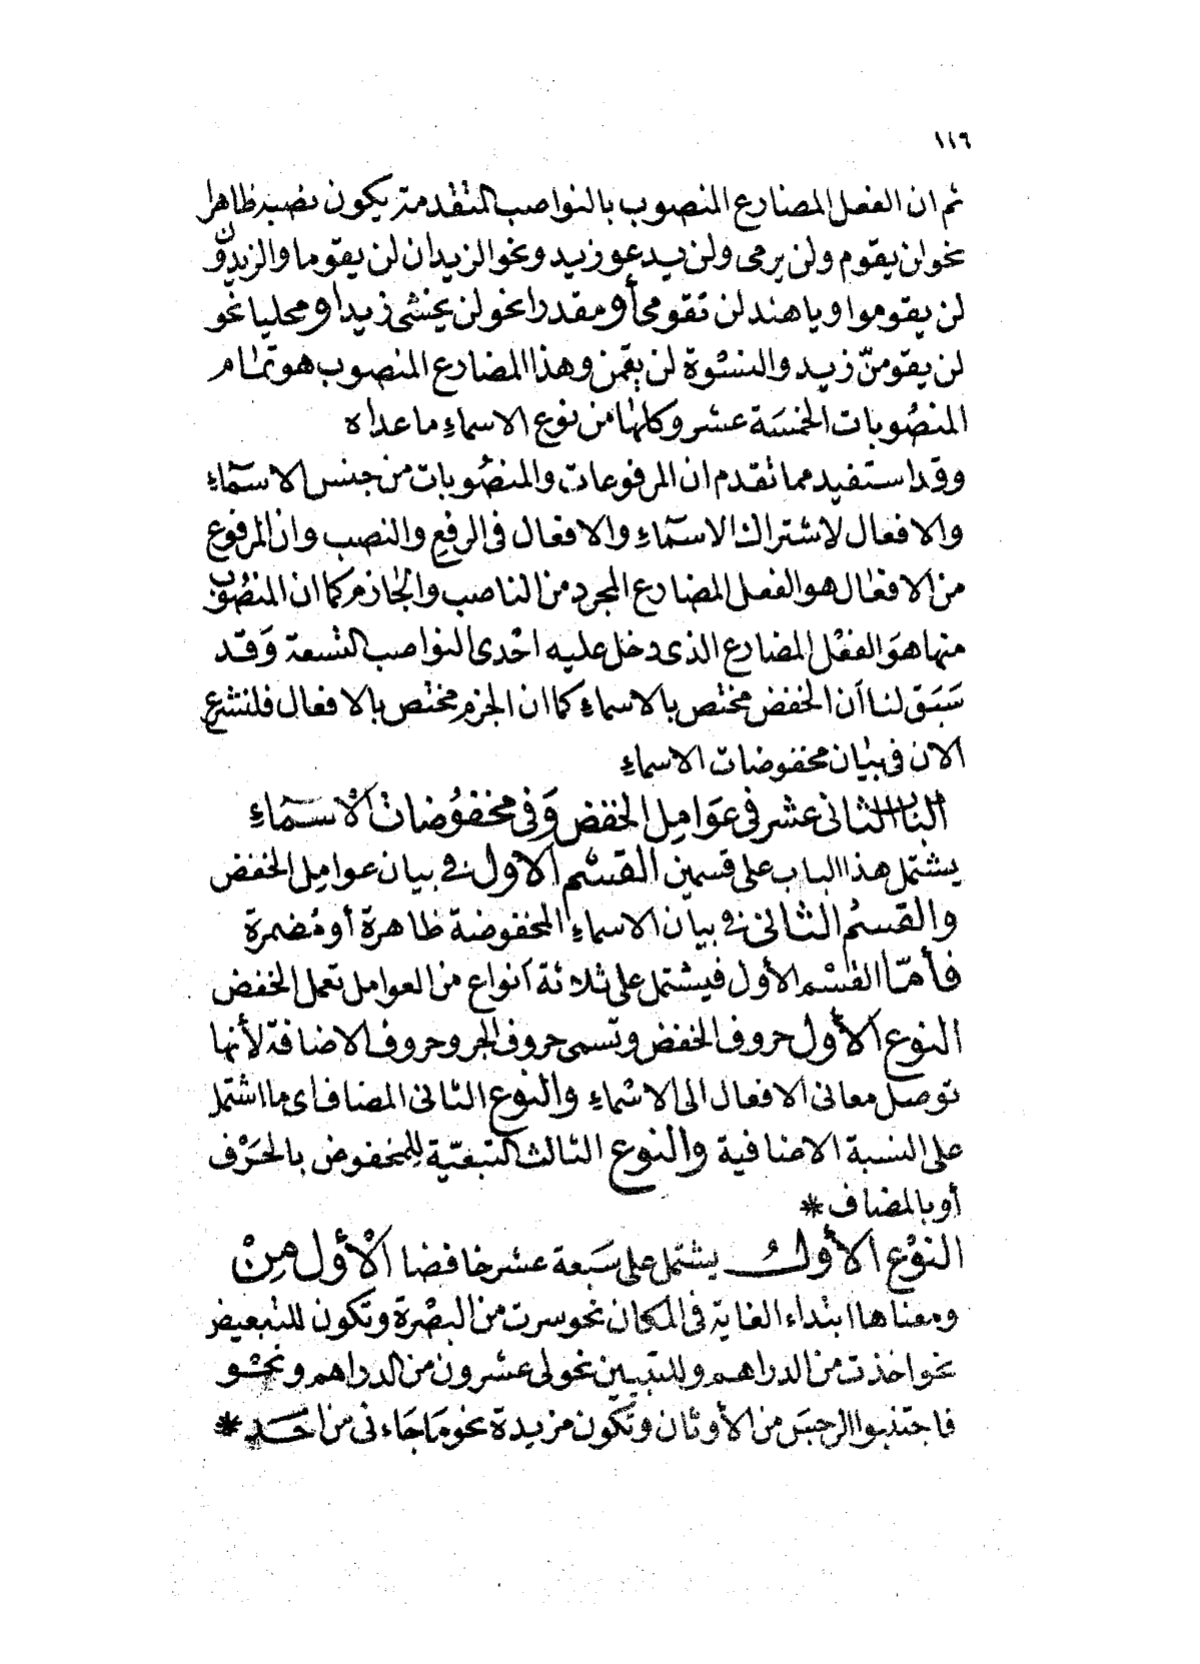 ١١٦
ثم ان الفعل المضارع المنصوب بالنواصب المتقدمة يكون نصبه ظاهرا
نحو لن يقوم ولن يرمى ولن يدعو زيد ونحو الزيدان لن يقوما والزيدون
لن يقوموا ويا هند لن تقومى أو مقدرا نحو لن يخشى زيد او محليا نحو
لن يقومنّ زيد والنسْوة لن يقمن وهذا المضارع المنصوب هو تمام
المنصُوبات الخمسَة عشر وكلها من نوع الاسماء ما عداه
وقد استفيد مما تقدم ان المرفوعات والمنصُوبات من جنس الاسمَآء
والافعال لاشتراك الاسمَآء والافعال فى الرفع والنصب وان المرفوع
من الافعال هو الفعل المضارع المجرد من الناصب والجازم كما ان المنصُوب
منها هوَ الفعْل المضارع الذى دخل عليه احْدى النواصب التسعة وَقد
سَبَق لنا أن الخفض مختص بالاسماء كما ان الجزم مختص بالافعال فلنشرع
الان فى بيان مخفوضات الاسماء
الباب الثانى عشر فى عوَامِل الخفض وَفى مخفوُضات الأسمَآء
يشتمل هذا الباب على قسمين القسْم الاول فى بيان عوامِل الخفض
والقسمُ الثانى فى بيان الاسماء المخفوضة ظاهرة أو مُضمرة
فأمّا القسْم الأول فيشتمل على ثلاثة أنواع من العوامل تعمل الخفض
النوع الأول حروف الخفض وتسمى حروف الجر وحروف الاضافة لأنها
توصل معانى الافعال الى الاسْماء والنوع الثانى المضاف اى ما اشتمل
على النسبة الاضافية والنوع الثالث التبعيّة لِلمخفوض بالحَرْف
أو بالمضاف *
النوْع الأولُ يشتمل على سَبعة عشر خافضا الْأوْل مِنْ
ومعناها ابتداء الغاية فى المكان نحو سرت من البصْرة وتكون للتبعيض
نحو اخذت من الدراهم وللتبيين نحو لى عشرون من الدراهم ونحْو
فاجتنبوا الرجسَ من الأوثان وتكون مزيدة نحو مَا جَاءنى من احَد *